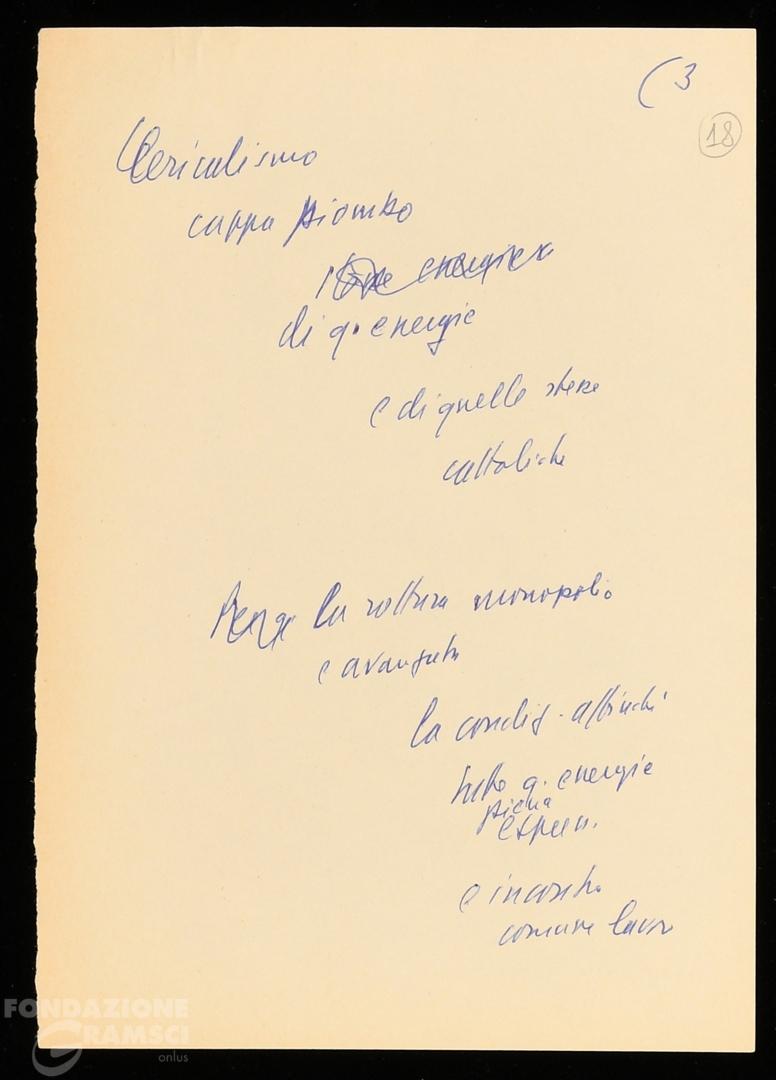 ( 3
18
Clericalismo
cappa piombo
energie
di q. energie
e di quelle stesse
cattoliche
la rottura monopolio
e avanzata
la condiz. affinché
tutte q. energie
piena
espress.
e incontro
comune lavoro
FONDAZIONE
GRAMSCI
onlus